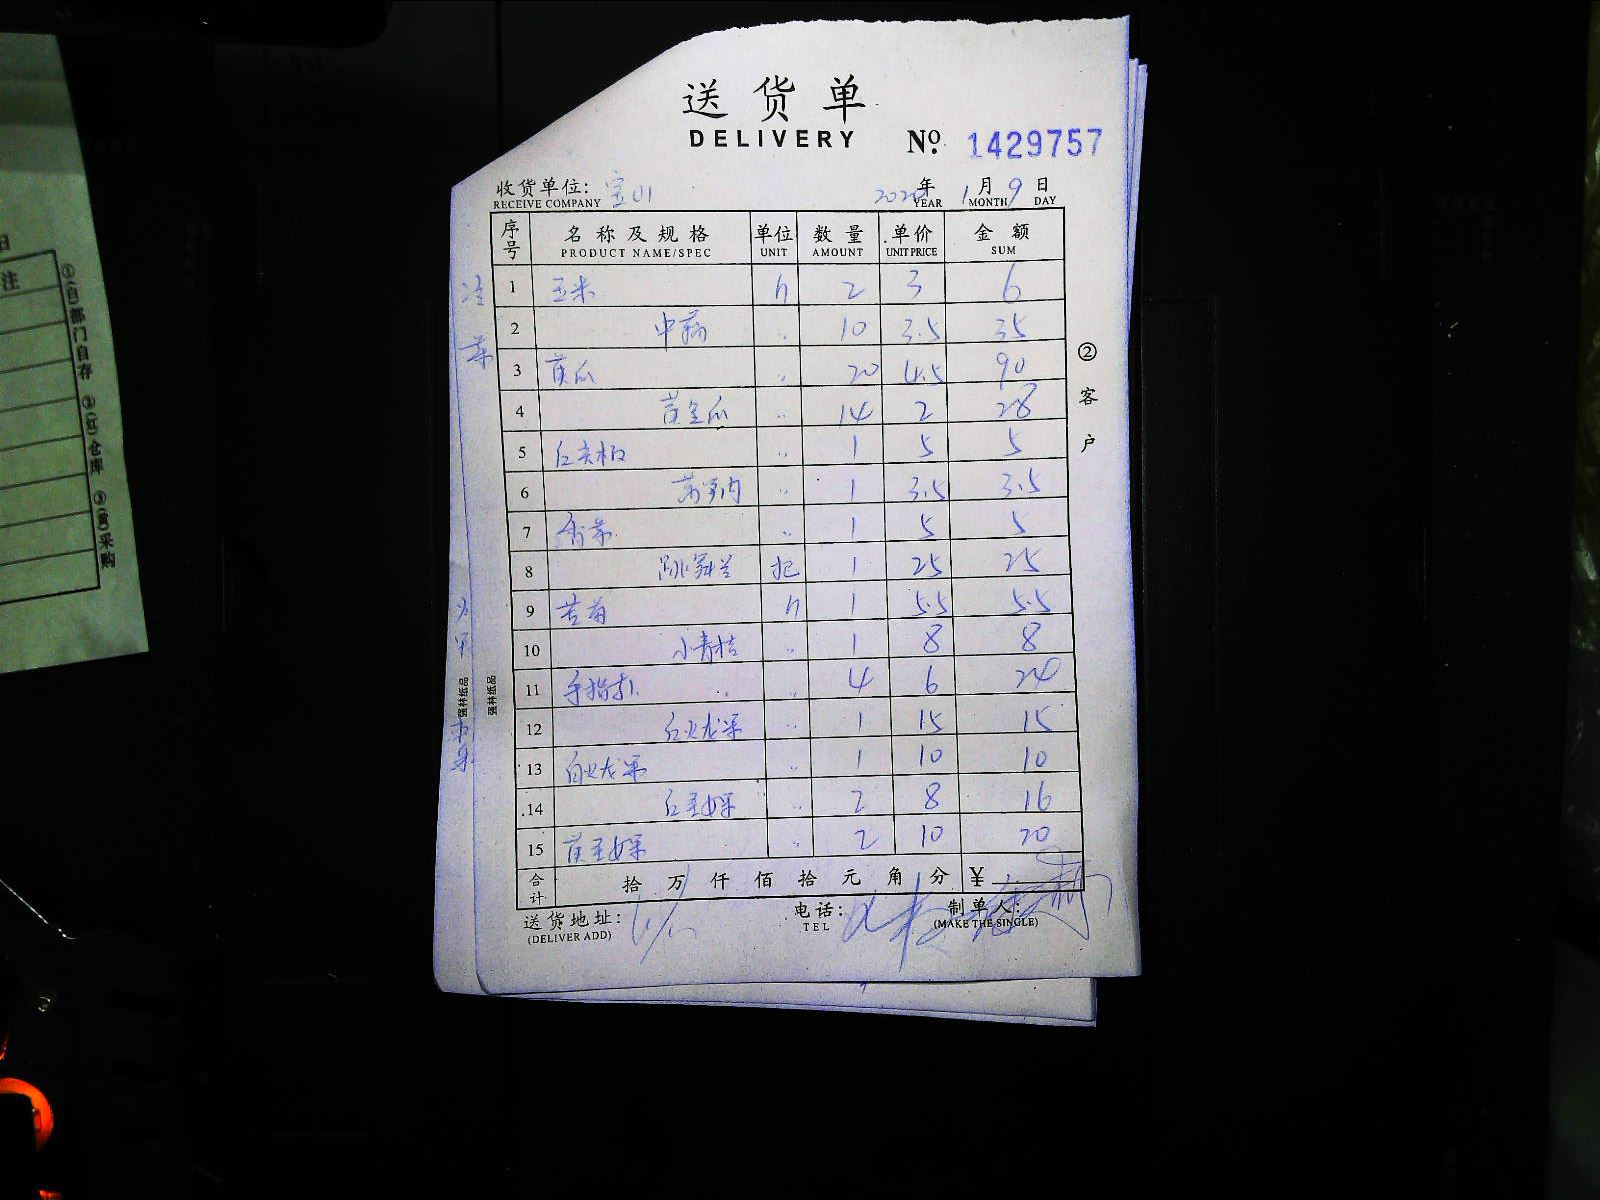 送货单
DELIVERY
№ 1429757
收货单位: 宝山 2020年 1月 9日
RECEIVE COMPANY YEAR MONTH DAY
序号 名称及规格 单位 数量 单价 金额
PRODUCT NAME/SPEC UNIT AMOUNT UNIT PRICE SUM
1 玉米 2 3 6
2 中藕 〃 10 3.5 35
3 黄瓜 〃 20 4.5 90
4 黄金瓜 〃 14 2 28
5 〃 1 5 5
6 〃 1 3.5 3.5
7 香茅 〃 1 5 5
8 跳舞兰 把 1 25 25
9 苦苗 1 5.5 5.5
10 小青桔 〃 1 8 8
11 〃 4 6 24
12 红火龙果 〃 1 15 15
13 白火龙果 〃 1 10 10
14 〃 2 8 16
15 〃 2 10 20
合计 拾 万 仟 佰 拾 元 角 分 ¥
送货地址: 电话: 制单人:
(DELIVER ADD) TEL (MAKE THE SINGLE)
②客户
强林纸品
强林纸品
注
①(白)部门自存 ②(红)仓库 ③(黄)采购